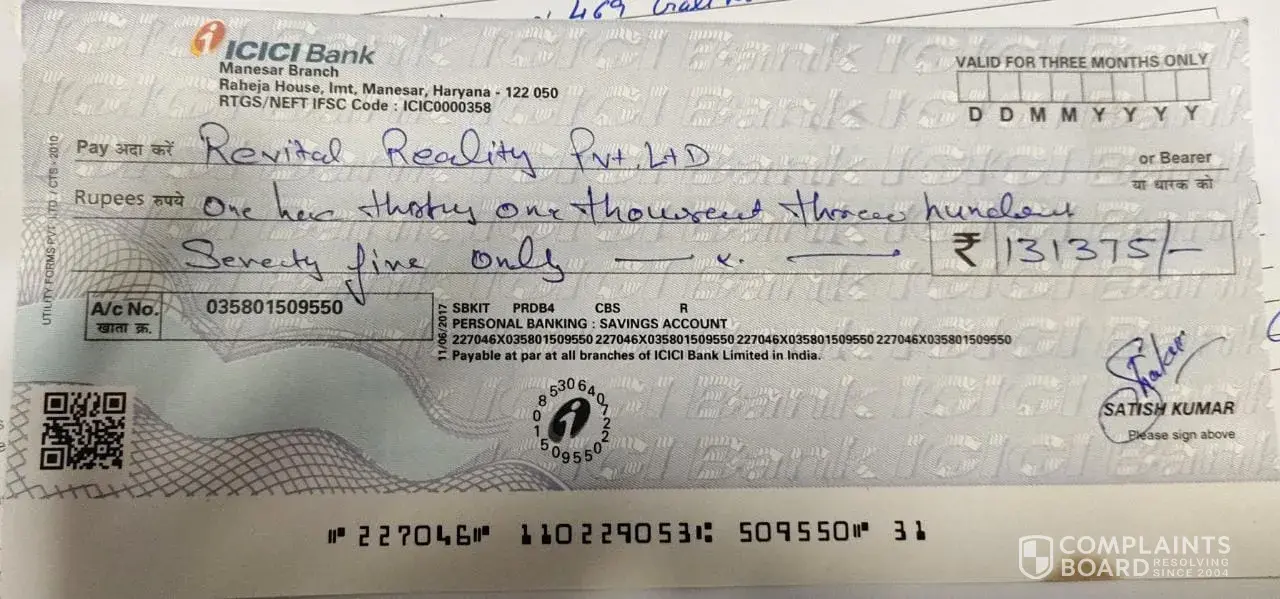 469
ICICI Bank
Manesar Branch
Raheja House, Imt, Manesar, Haryana - 122 050
RTGS/NEFT IFSC Code : ICIC0000358
VALID FOR THREE MONTHS ONLY
D D M M Y Y Y Y
Pay अदा करें Revital Reality Pvt. LTD or Bearer
या धारक को
Rupees रुपये One lac thirty one thousand three hundred
Seventy five only — x. —
₹ 131375/-
UTILITY FORMS PVT. LTD. / CTS - 2010
A/c No. 035801509550
खाता क्र.
11/06/2017
SBKIT PRDB4 CBS R
PERSONAL BANKING : SAVINGS ACCOUNT
227046X035801509550 227046X035801509550 227046X035801509550 227046X035801509550
Payable at par at all branches of ICICI Bank Limited in India.
SATISH KUMAR
Please sign above
⑈227046⑈ 110229053⑆ 509550⑈ 31
COMPLAINTS
BOARD RESOLVING
SINCE 2004